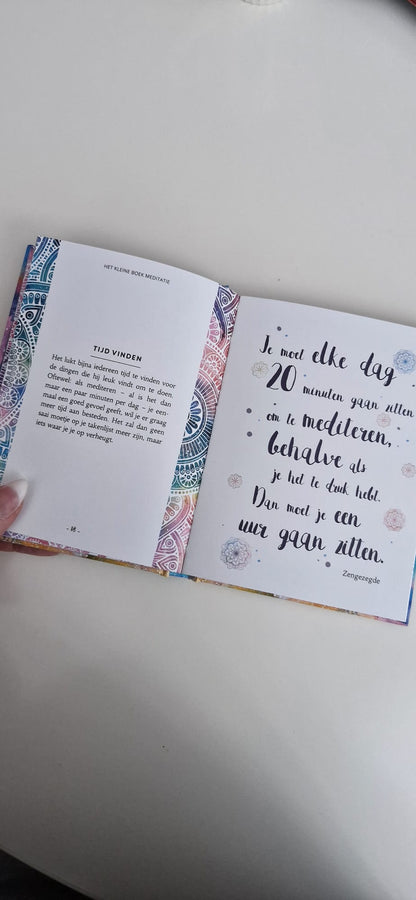 HET KLEINE BOEK MEDITATIE
TIJD VINDEN
Het lukt bijna iedereen tijd te vinden voor
de dingen die hij leuk vindt om te doen.
Oftewel: als mediteren – al is het dan
maar een paar minuten per dag – je een-
maal een goed gevoel geeft, wil je er graag
meer tijd aan besteden. Het zal dan geen
saai moetje op je takenlijst meer zijn, maar
iets waar je je op verheugt.
Je moet elke dag
20 minuten gaan zitten
om te mediteren,
behalve als
je het te druk hebt.
Dan moet je een
uur gaan zitten.
Zengezegde